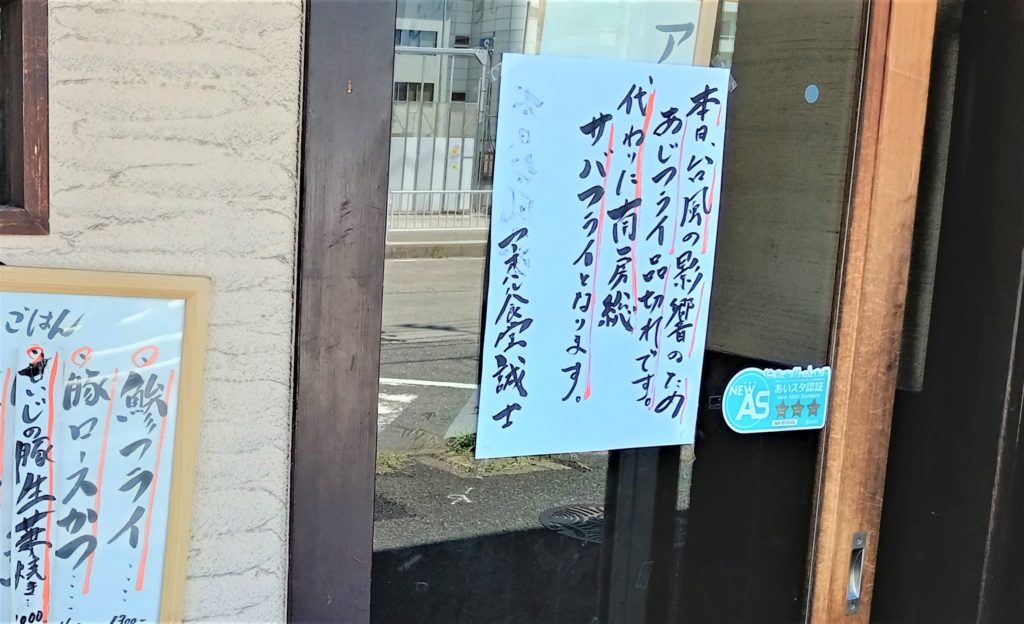 本日、台風の影響のため
あじフライ品切れです。
代わりに南房総
サバフライとなります。
食堂誠士
ア
NEW
AS
あいスタ認証
New Aichi Standard
ごはん
鯵フライ……
豚ロースかつ……
せいじの豚生姜焼き…